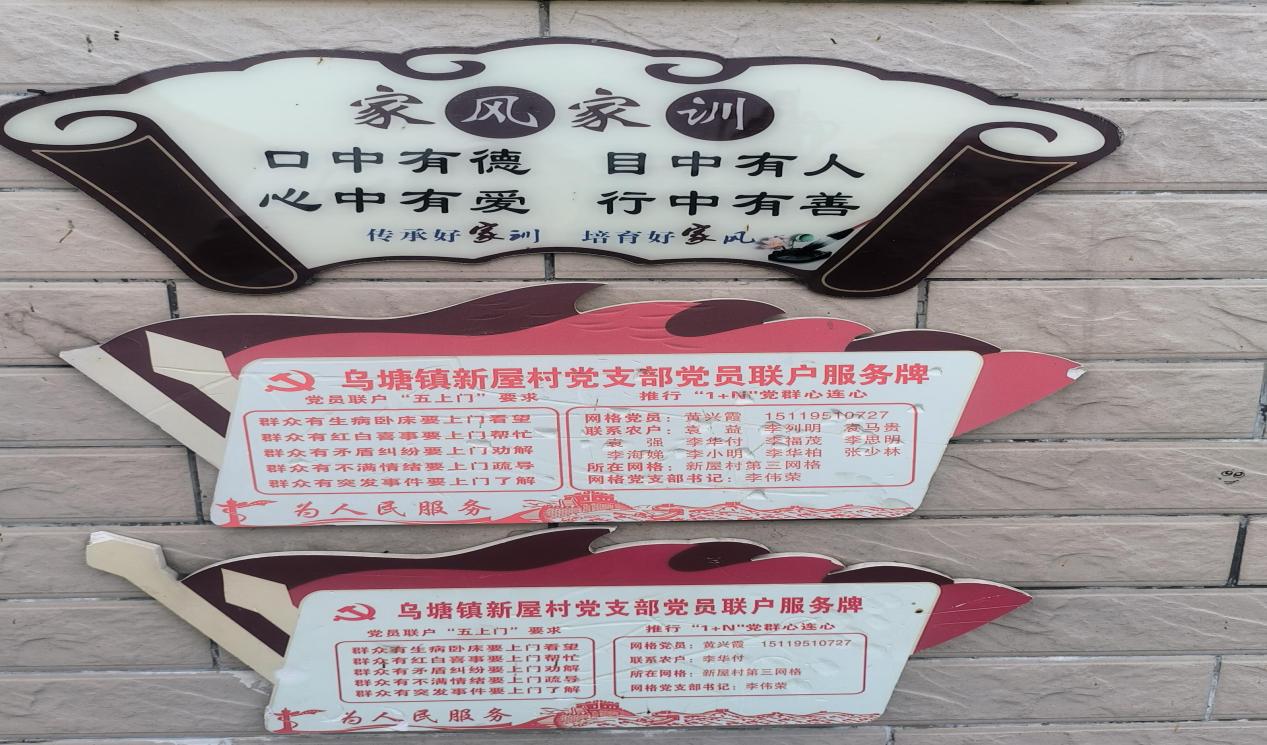 家风家训
口中有德 目中有人
心中有爱 行中有善
传承好家训 培育好家风
乌塘镇新屋村党支部党员联户服务牌
党员联户“五上门”要求
群众有生病卧床要上门看望
群众有红白喜事要上门帮忙
群众有矛盾纠纷要上门劝解
群众有不满情绪要上门疏导
群众有突发事件要上门了解
推行“1+N”党群心连心
网格党员：黄兴霞 15119510727
联系农户：袁 益 李列明 袁马贵
袁 强 李华付 李福茂 李思明
李海娣 李小明 李华柏 张少林
所在网格：新屋村第三网格
网格党支部书记：李伟荣
为人民服务
乌塘镇新屋村党支部党员联户服务牌
党员联户“五上门”要求
群众有生病卧床要上门看望
群众有红白喜事要上门帮忙
群众有矛盾纠纷要上门劝解
群众有不满情绪要上门疏导
群众有突发事件要上门了解
推行“1+N”党群心连心
网格党员：黄兴霞 15119510727
联系农户：李华付
所在网格：新屋村第三网格
网格党支部书记：李伟荣
为人民服务